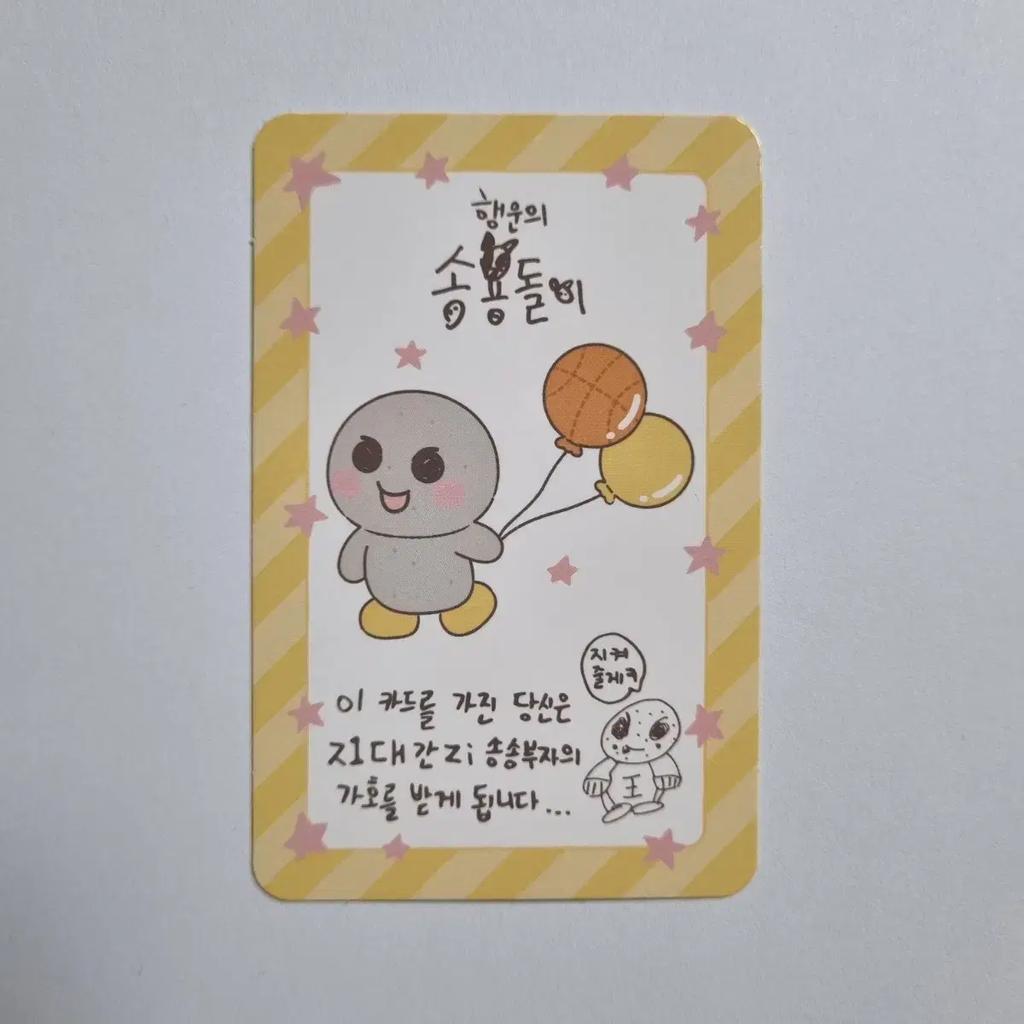 행운의
송용돌이
지켜
줄게ㅋ
이 카드를 가진 당신은
지1대간Zi 송송부자의
가호를 받게 됩니다...
王